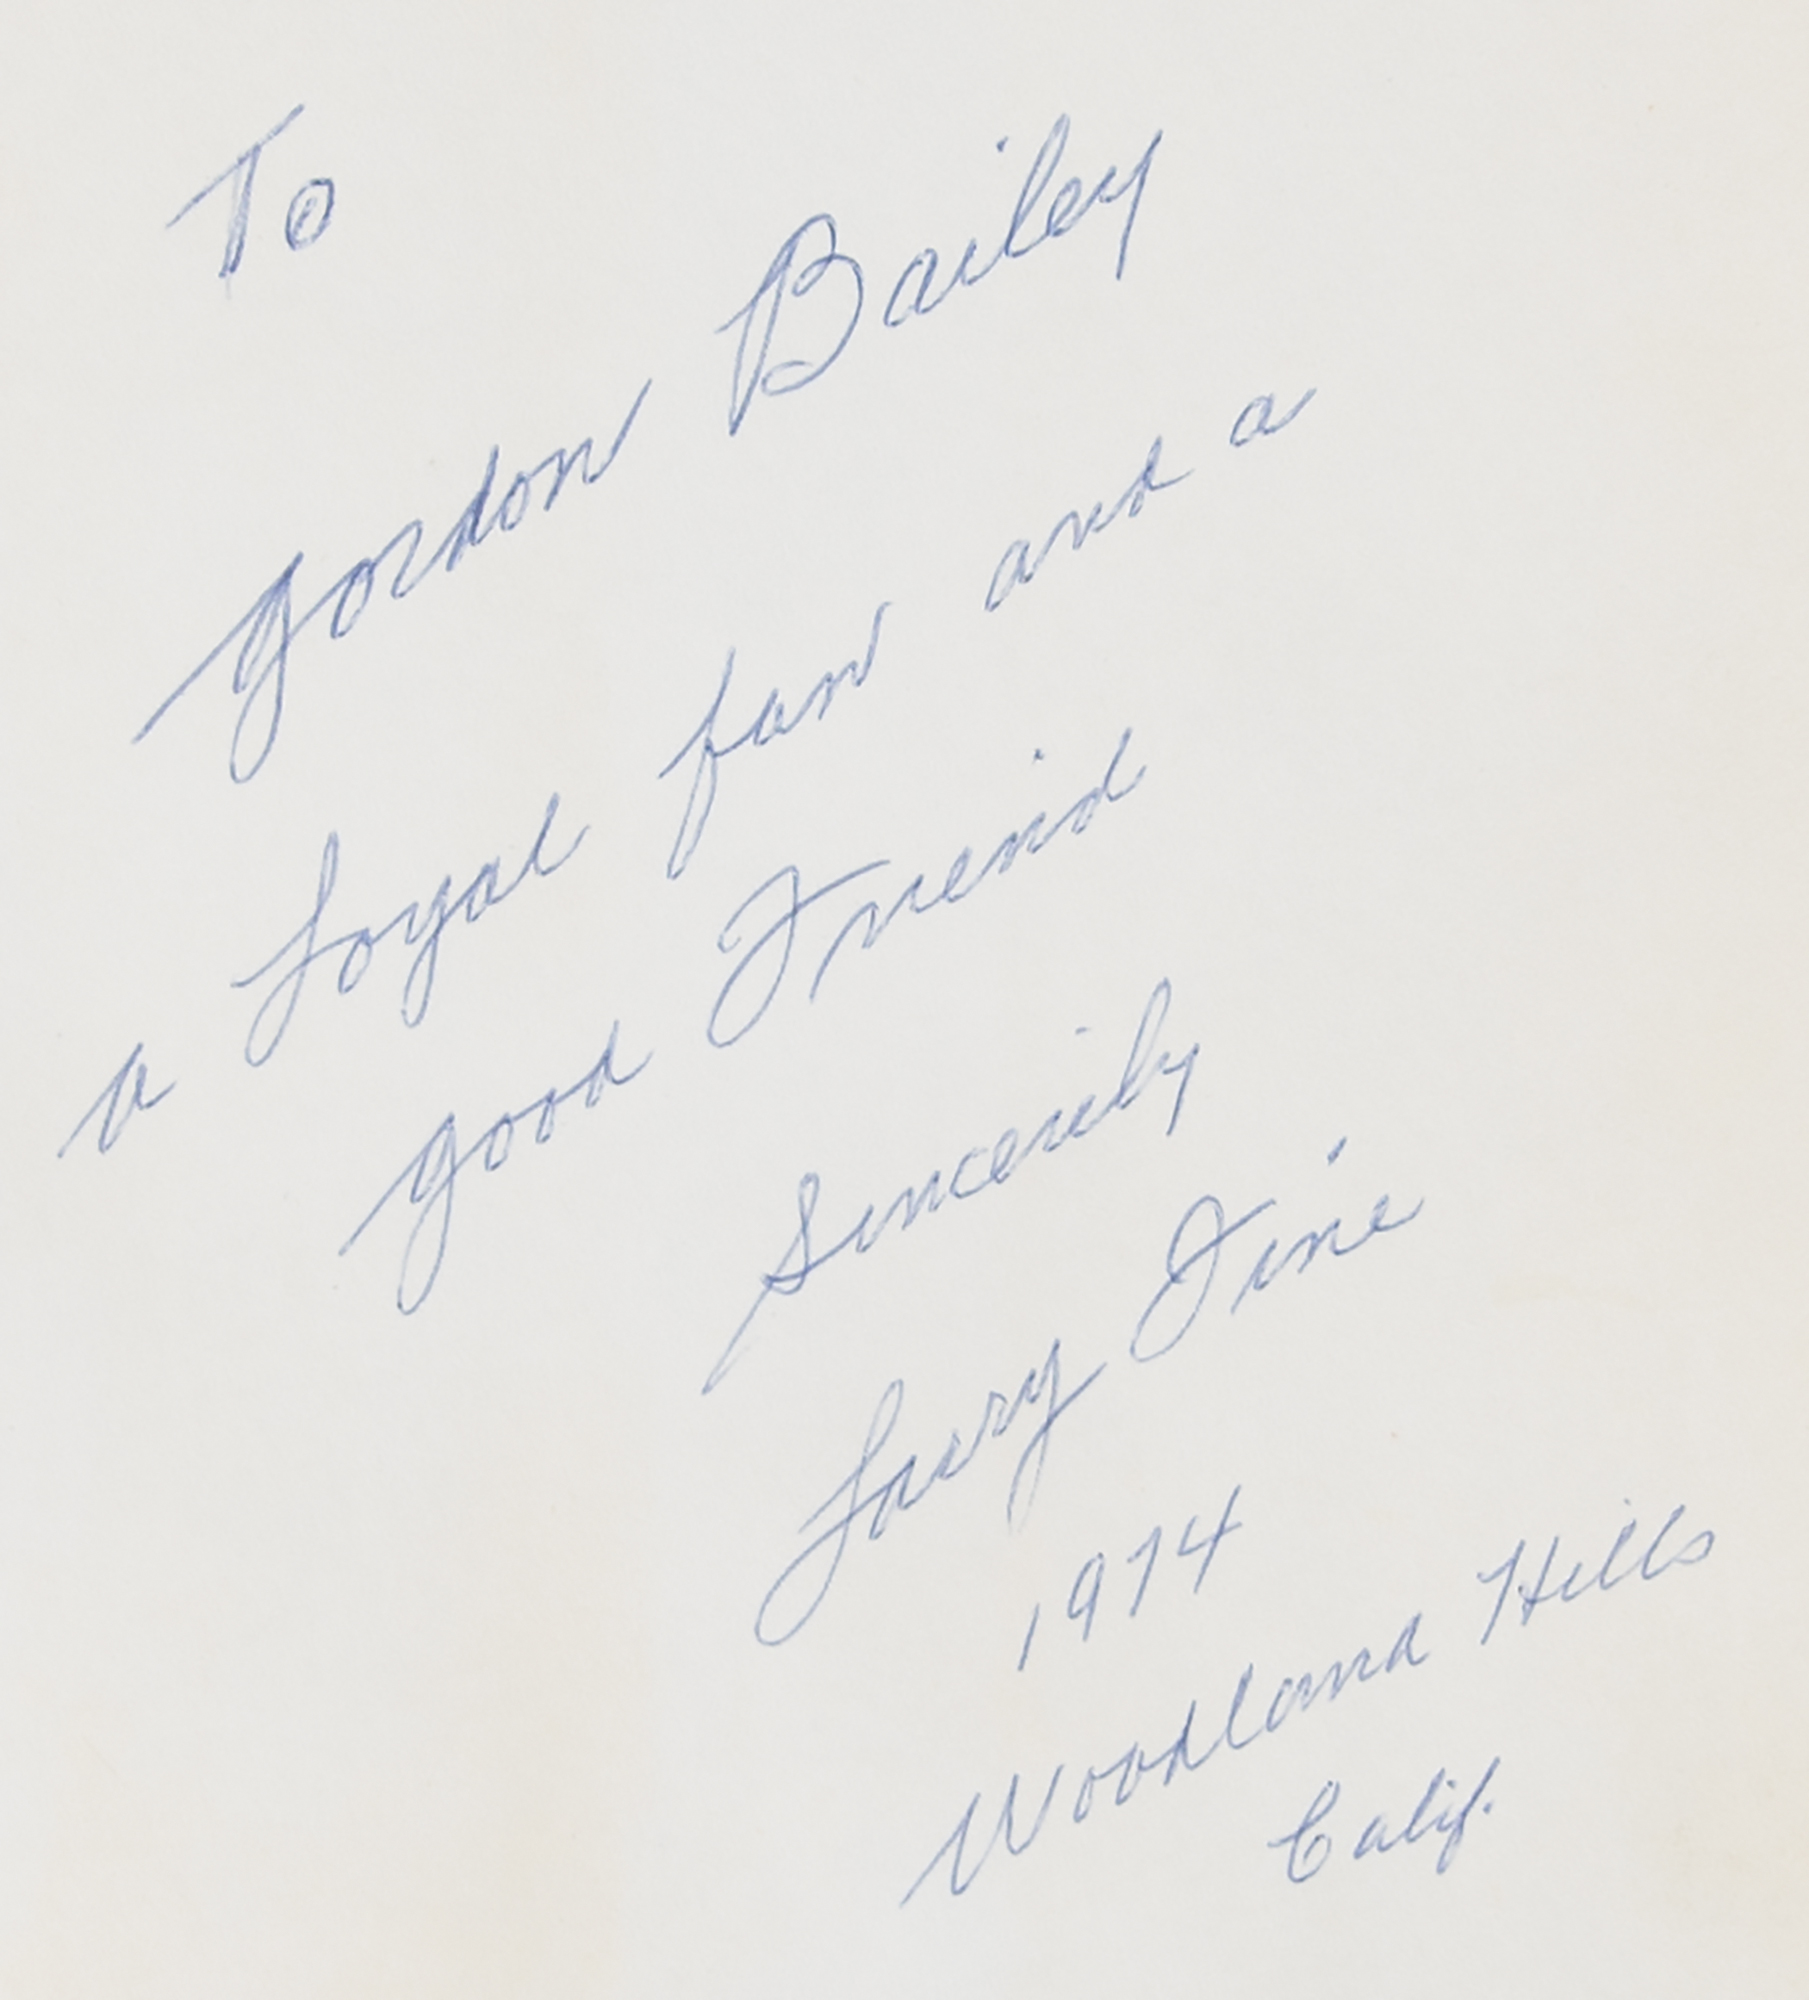 To
Gordon Bailey
a loyal fan and a
good Freind
Sincerily
Larry Fine
1974
Woodland Hills
Calif.